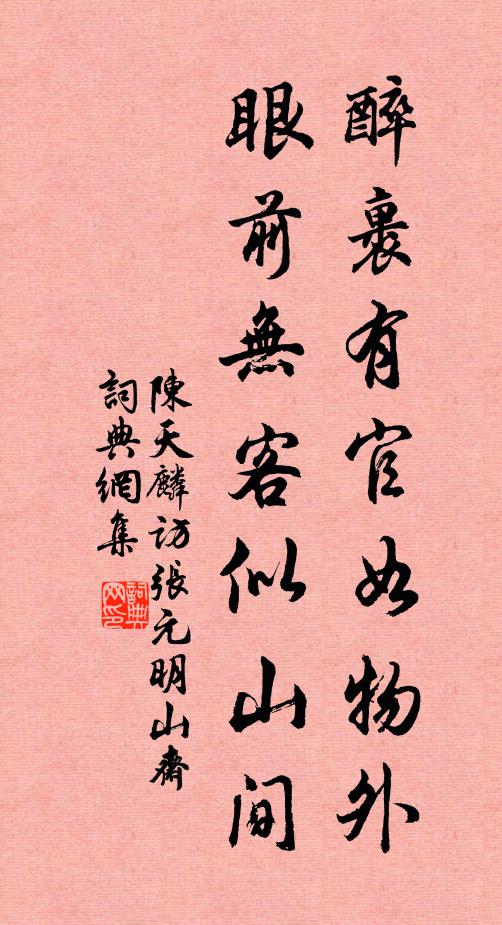 醉裏有官如物外
眼前無客似山間
陳天麟访張元明山齋
詞典網集
詞典网印